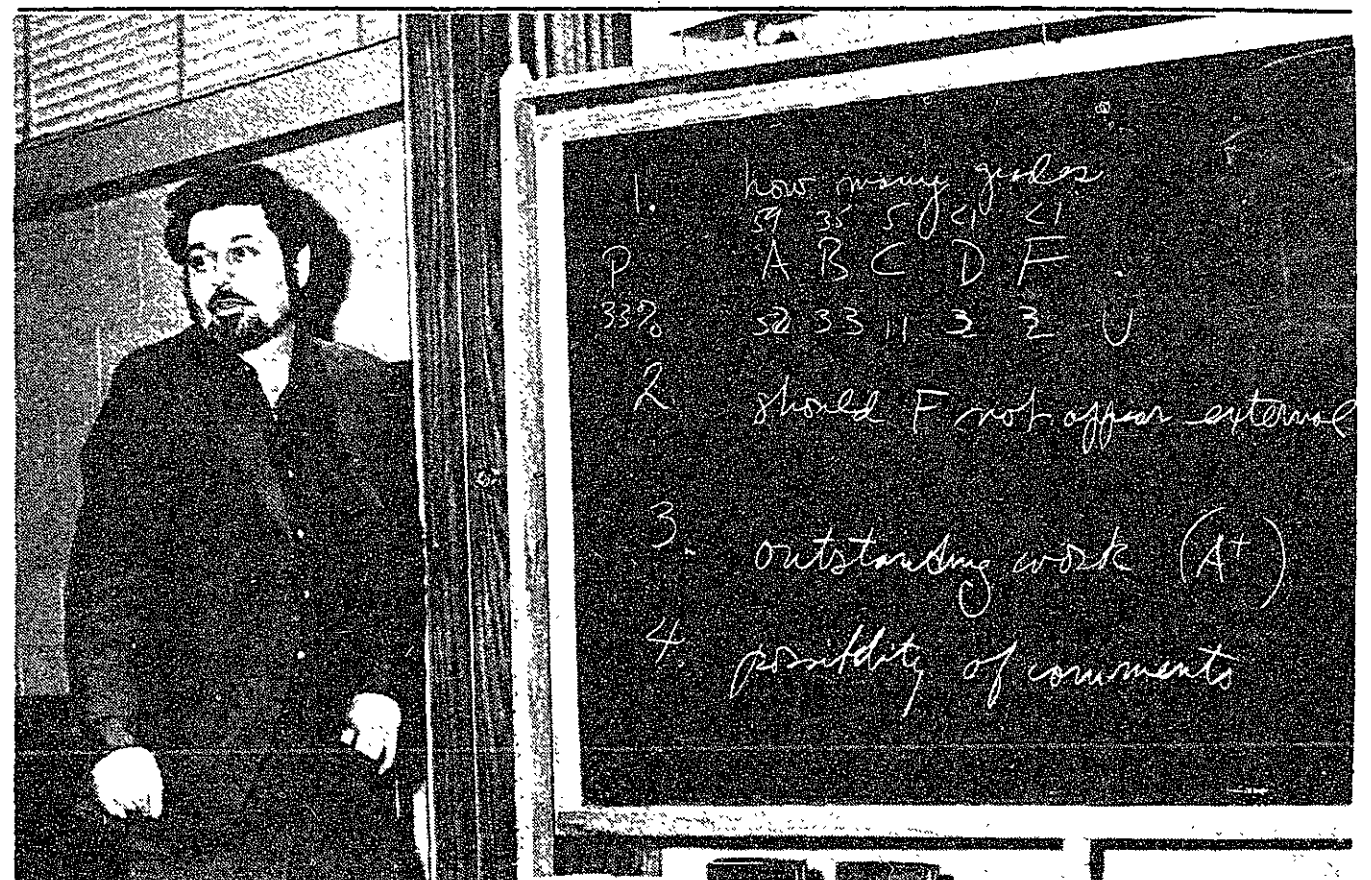 1. how many grades
59 35 5 <1 <1
P A B C D F
33% 52 33 11 3 2 U
2 should F not appear external
3. outstanding work (A+)
4. possibility of comments